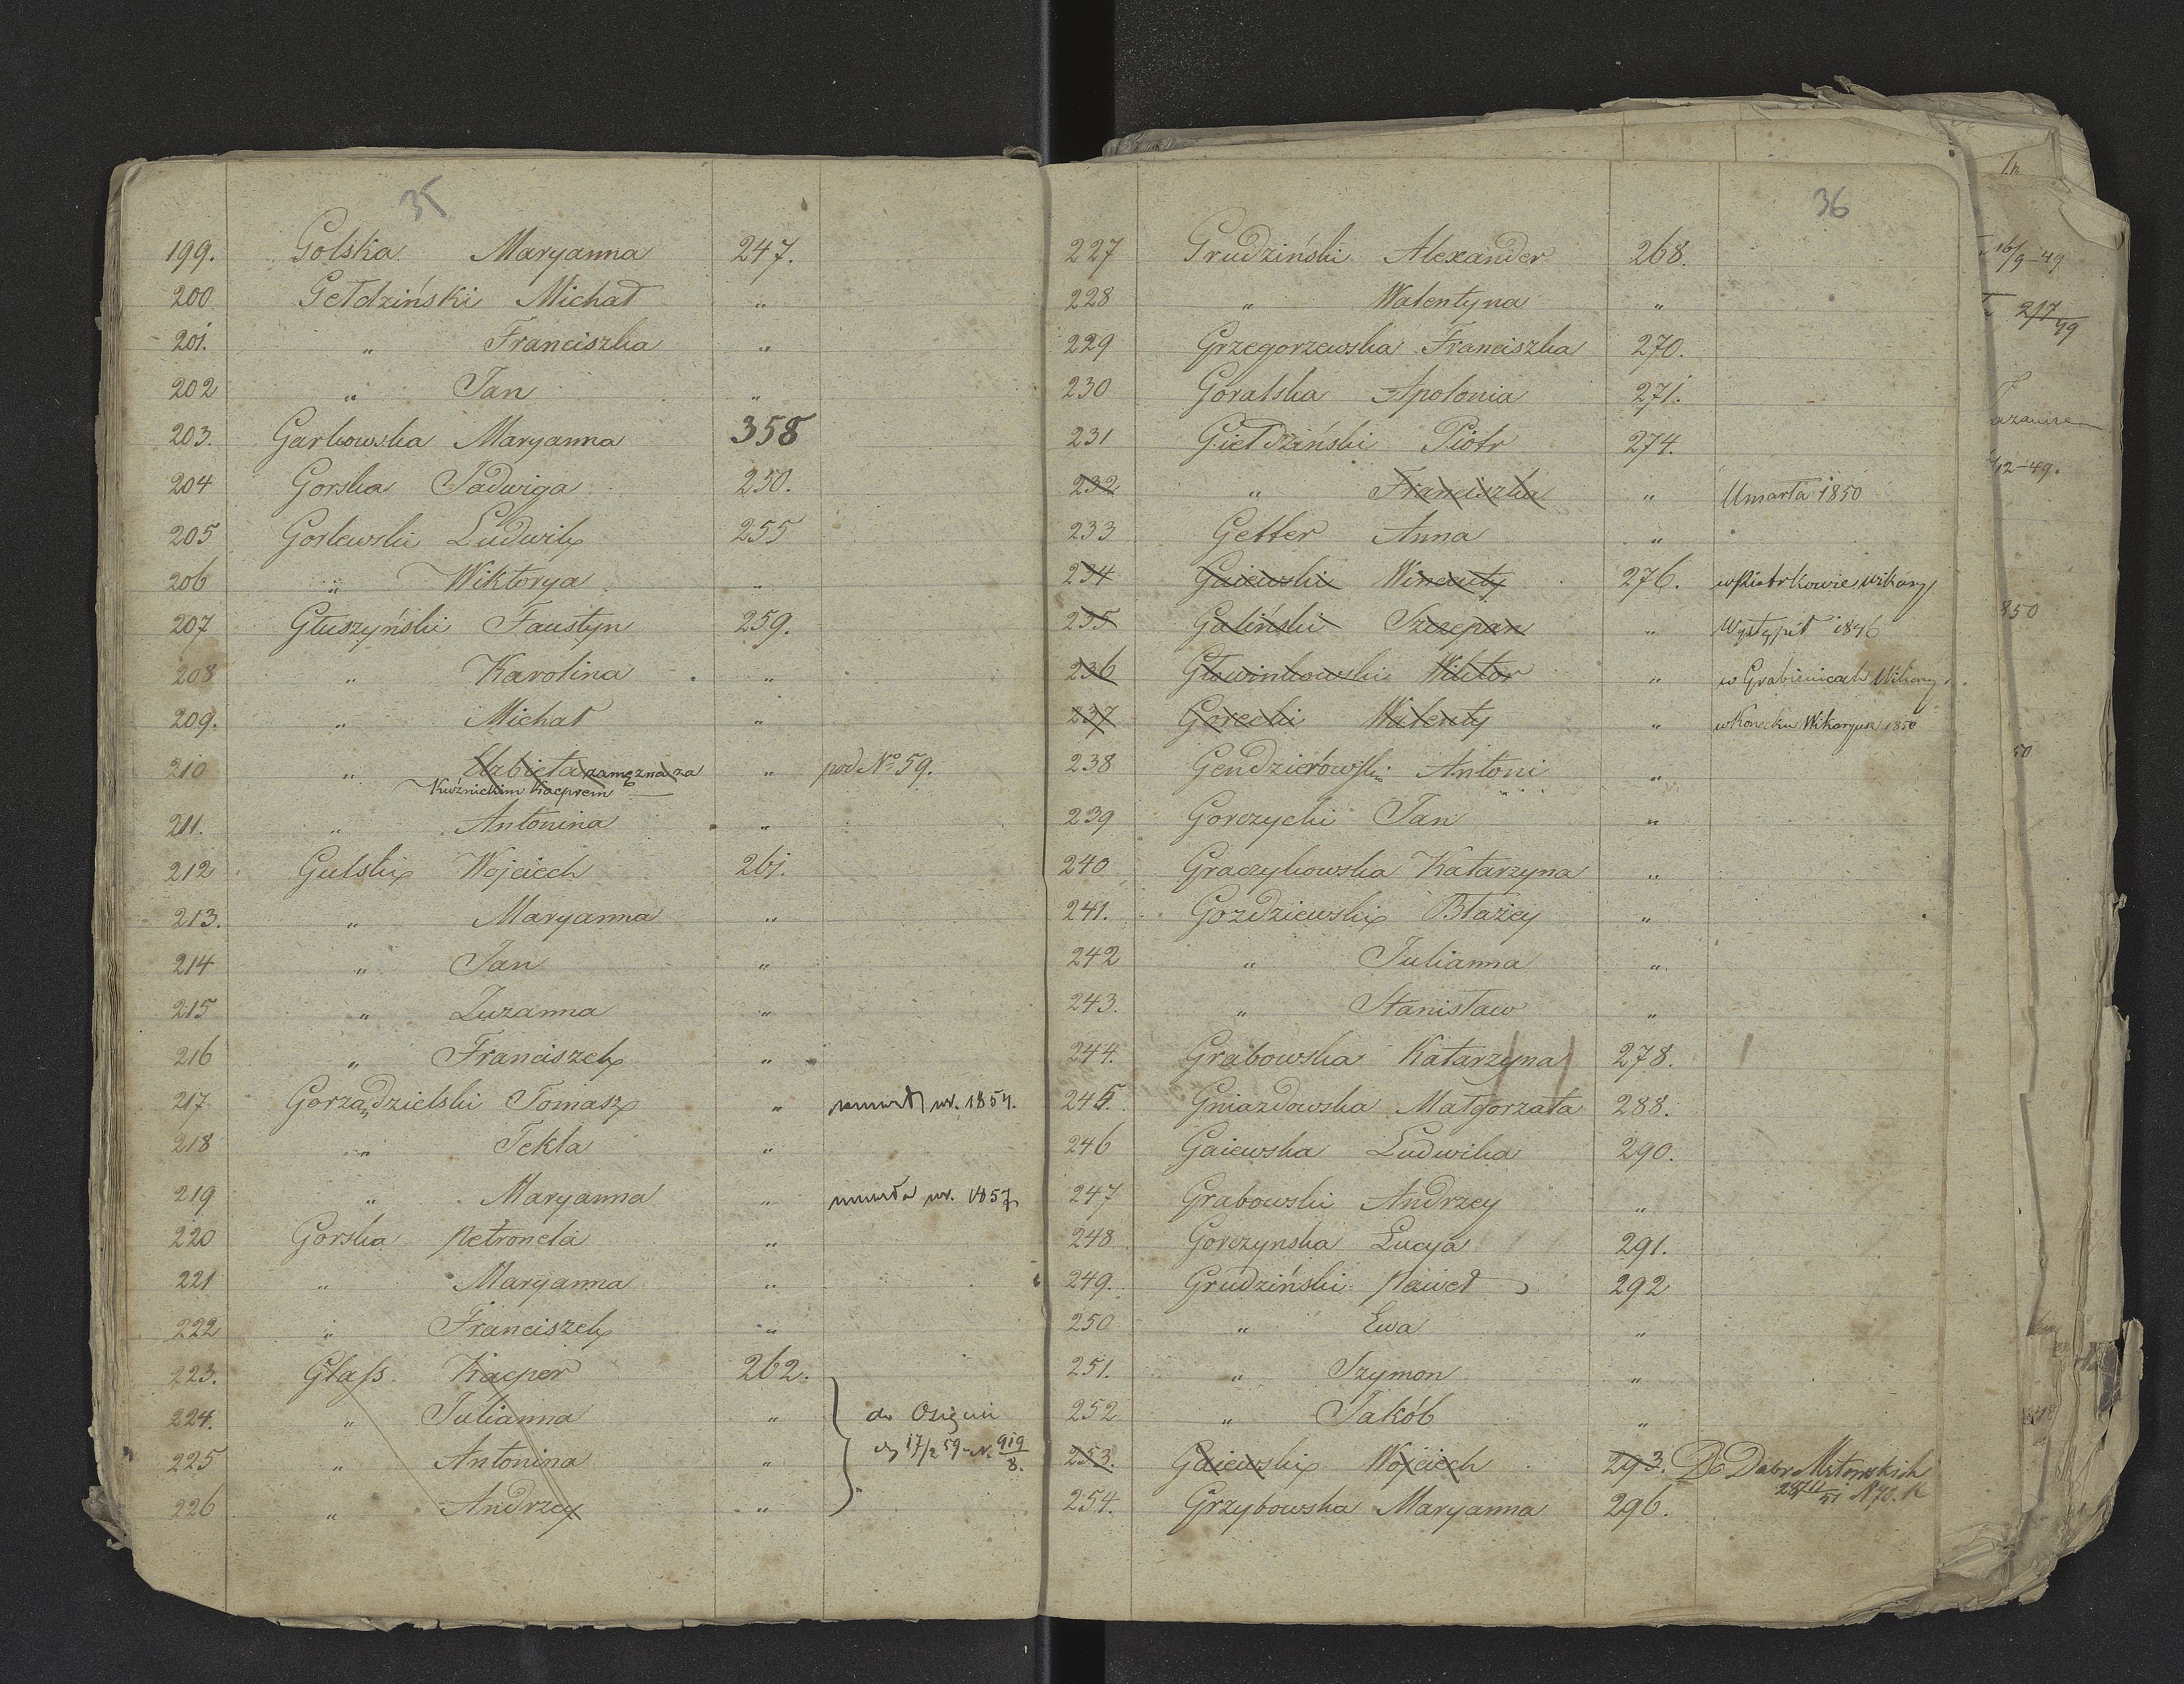 35
199. Golska Maryanna 247.
200 Gełdziński Michał „
201. „ Franciszka „
202 „ Jan „
203. Garkowska Maryanna 358
204 Gorska Jadwiga 250.
205 Goslewski Ludwik 255
206 „ Wiktorya „
207 Głuszyński Faustyn 259.
208 „ Karolina „
209. „ Michał „
210 „ Elzbieta zamężna za „ pod No 59.
Kuźnickim Kacprem
211. „ Antonina „
212 Gulski Wojciech 261.
213. „ Maryanna „
214 „ Jan „
215 „ Zuzanna „
216 „ Franciszek „
217 Gorządzielski Tomasz „ umarł w r. 1854.
218 „ Tekla „
219 „ Maryanna „ umarła w r. 1857
220 Gorska Petronela „
221 „ Maryanna „
222 „ Franciszek „
223. Glass Kacper 262.
224. „ Julianna „ do Osięcin
225 „ Antonina „ d. 17/2 59 N. 919/8.
226 „ Andrzey „
36
227 Grudziński Alexander 268.
228 „ Walentyna „
229 Grzegorzewska Franciszka 270.
230 Goralska Apolonia 271.
231 Giełdziński Piotr 274.
232 „ Franciszka „ Umarła 1850
233 Getter Anna „
234 Gaiewski Wincenty 276. w Piotrkowie wikary
235 Galiński Szczepan „ Wystąpił 1846
236 Głowinkowski Wiktor „ w Grabienicach Wikary
237 Gorecki Walenty „ w Konecku Wikaryusz 1850
238 Gendzierowski Antoni „
239 Gorczycki Jan „
240 Graczykowska Katarzyna „
241. Gozdziewski Błażey „
242 „ Julianna „
243. „ Stanisław „
244. Grabowska Katarzyna 278.
245. Gniazdowska Małgorzata 288.
246 Gaiewska Ludwika 290.
247 Grabowski Andrzey „
248 Gorczynska Lucya 291.
249. Grudziński Paweł 292
250 „ Ewa „
251. „ Szymon „
252 „ Jakób „
253. Gaiewski Wojciech 293. Do Dobr
254. Grzybowska Maryanna 296.
16/9-49
2/7 49
12-49.
850
50